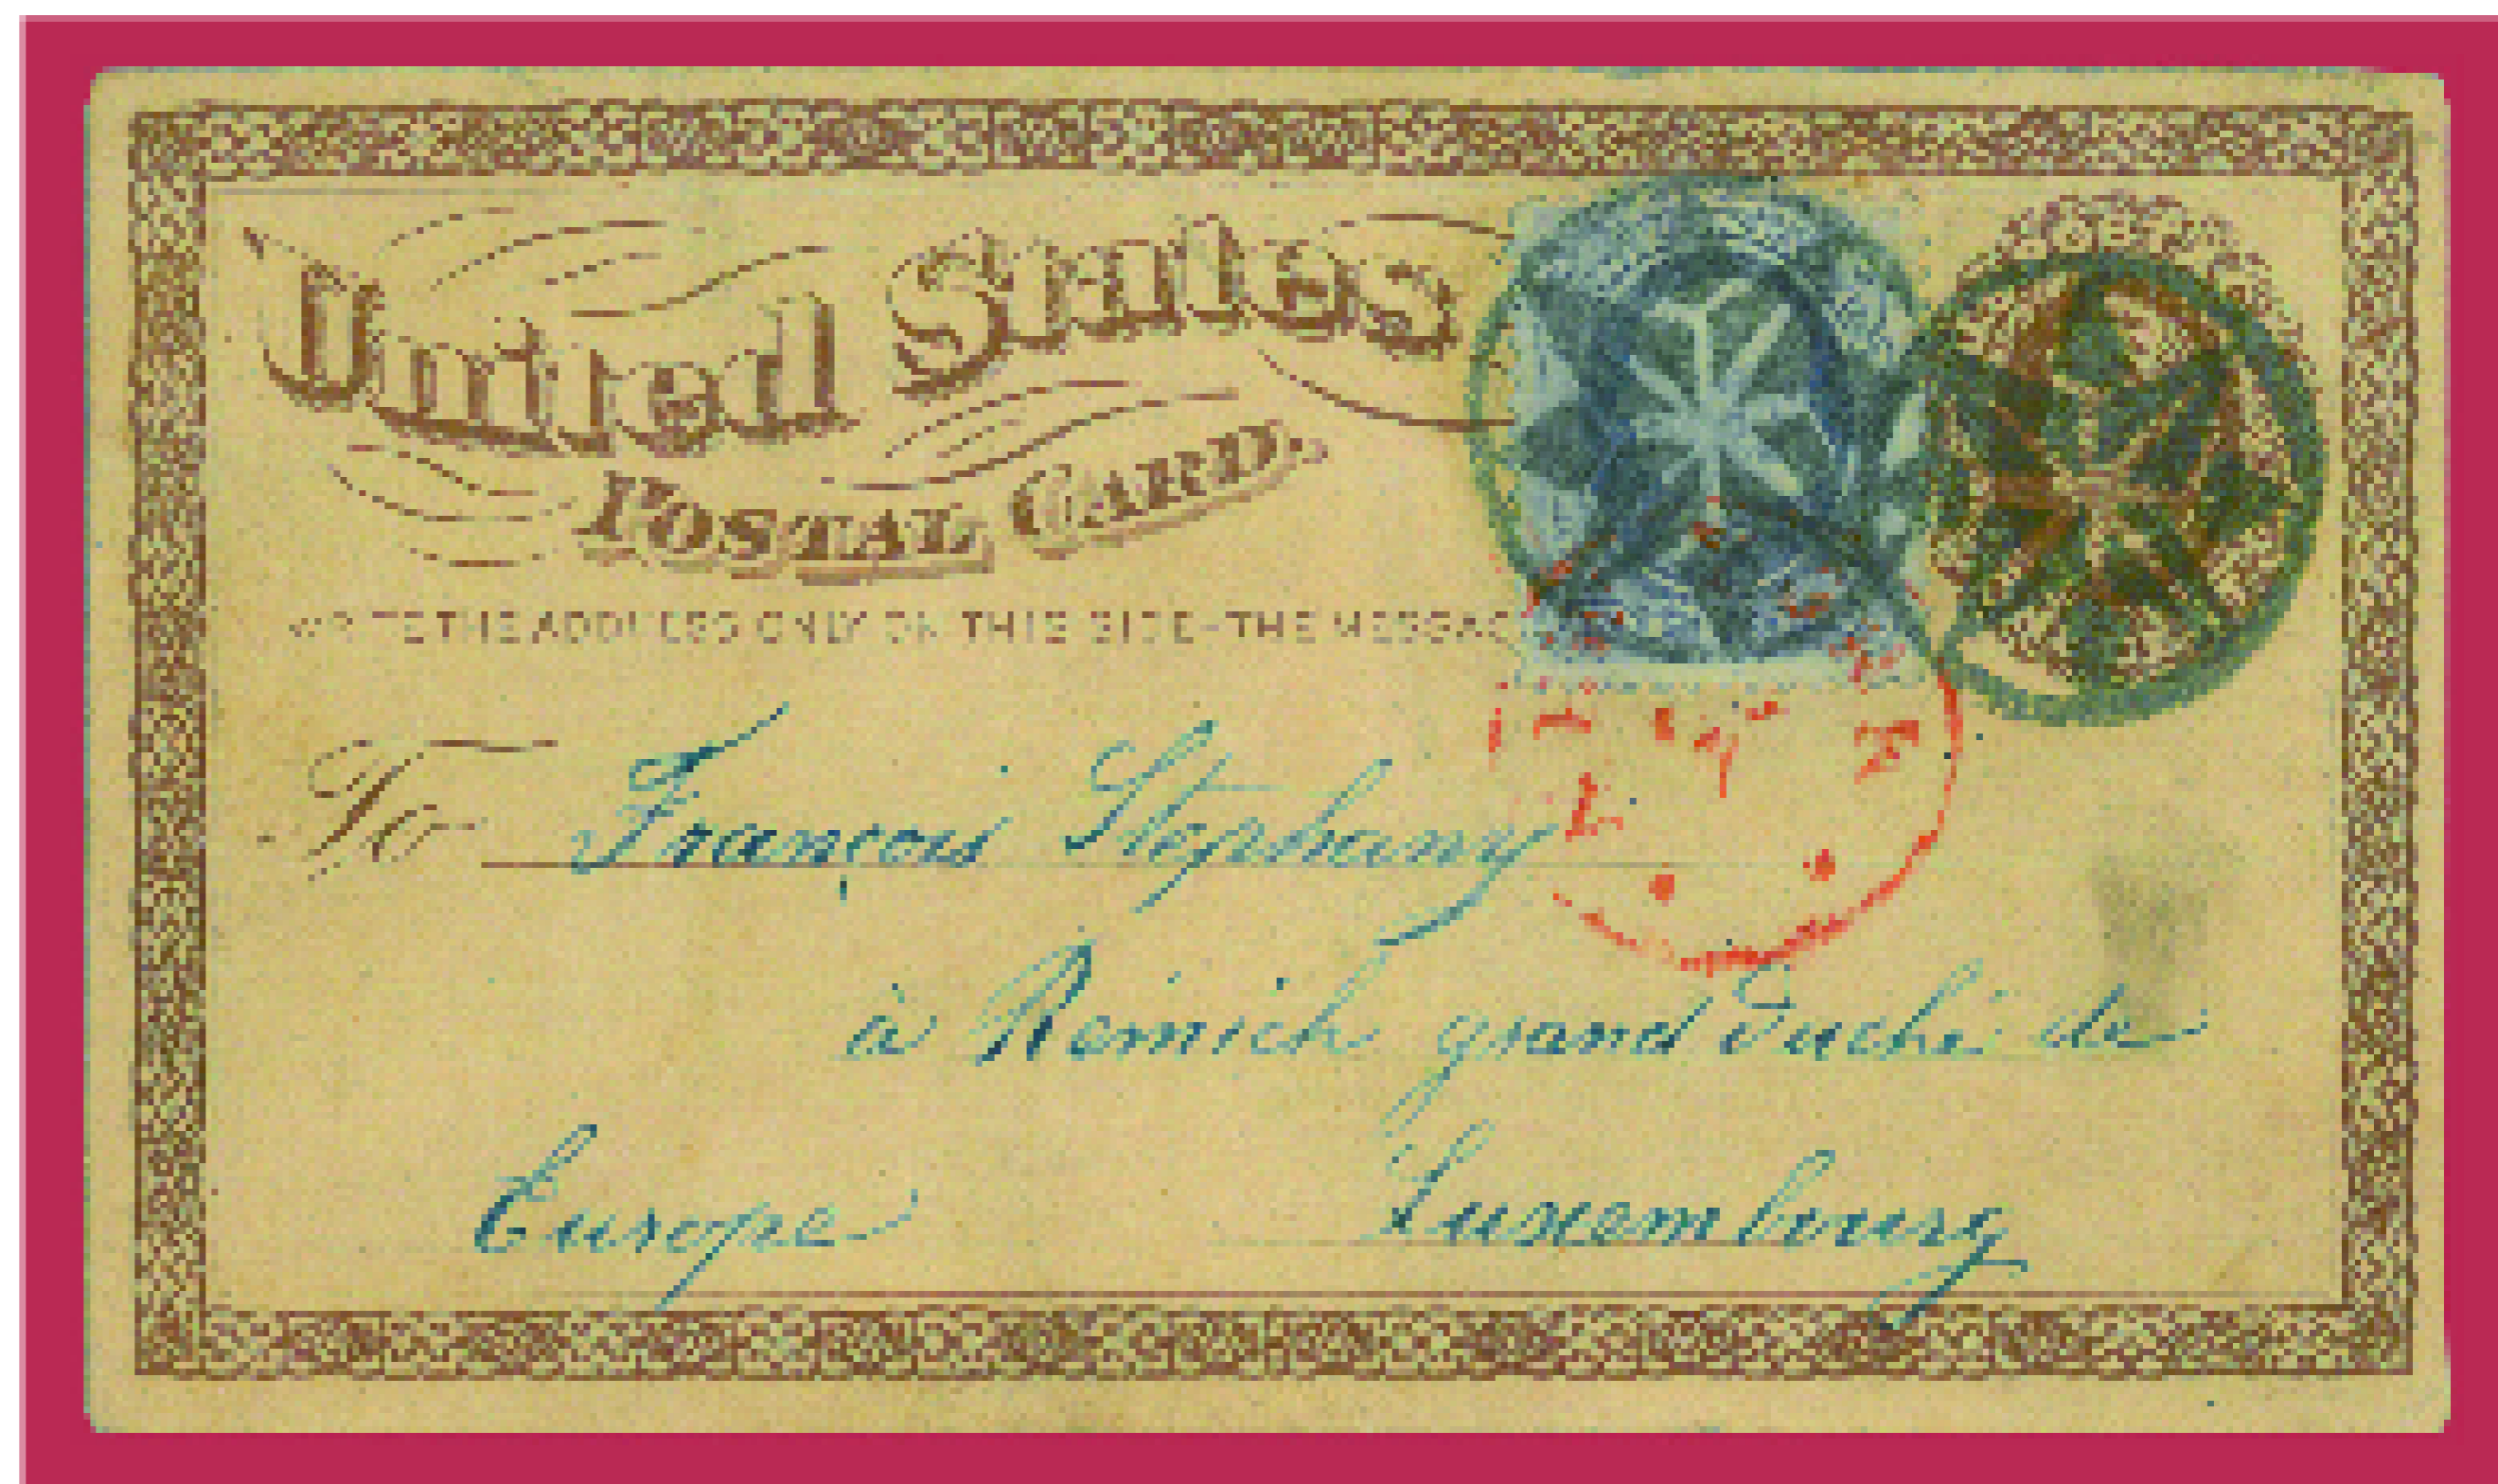 United States
POSTAL CARD.
WRITE THE ADDRESS ONLY ON THIS SIDE-THE MESSAG
To François Stephany
à Remich grand Duché de
Europe Luxembourg